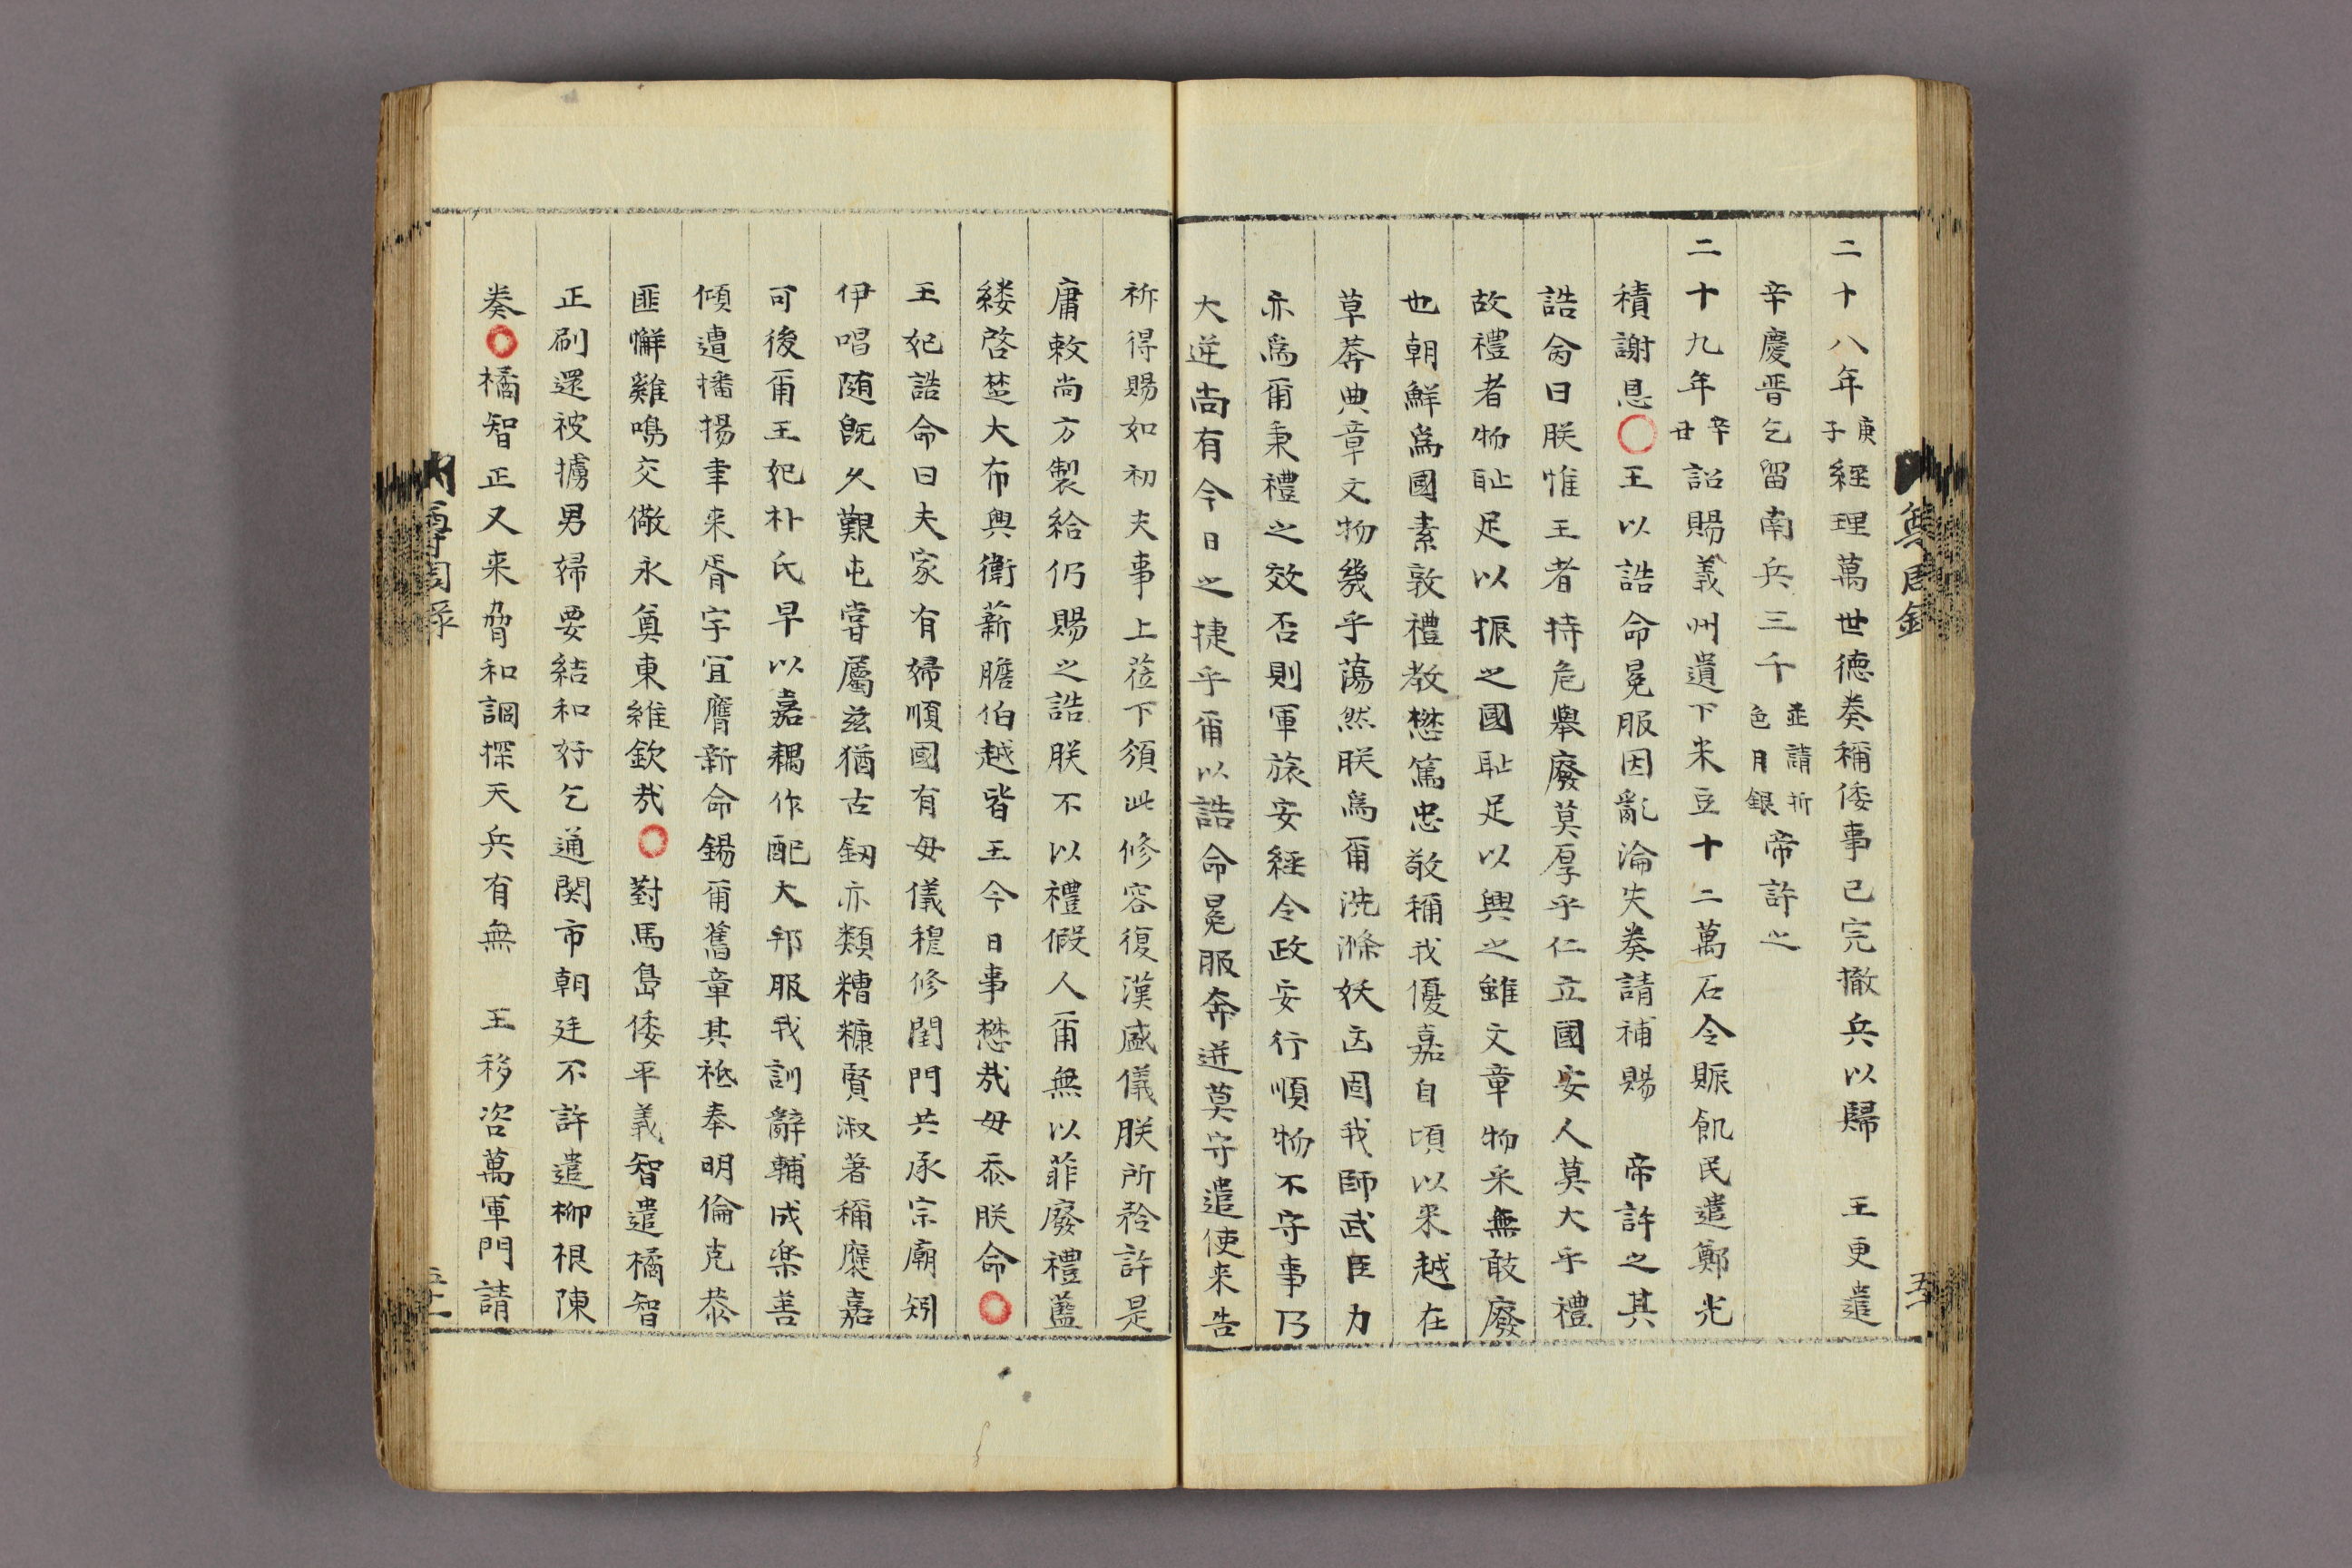 尊周録
五十
二十八年庚子經理萬世德奏稱倭事已完撤兵以歸 王更遣
辛慶晋乞留南兵三千並請折色月銀帝許之
二十九年辛丑詔賜義州遺下米豆十二萬石令賑飢民遣鄭光
積謝恩○王以誥命冕服因亂淪失奏請補賜 帝許之其
誥命曰朕惟王者持危舉廢莫厚乎仁立國安人莫大乎禮
故禮者物耻足以振之國耻足以興之雖文章物采無敢廢
也朝鮮爲國素敦禮教懋篤忠敬稱我優嘉自頃以来越在
草莽典章文物幾乎蕩然朕爲爾洗滌妖凶固我師武臣力
亦爲爾秉禮之效否則軍旅安經令政安行順物不守事乃
大逆尚有今日之捷乎爾以誥命冕服奔迸莫守遣使来告
祈得賜如初夫事上莅下須此修容復漢盛儀朕所矜許是
庸敕尚方製給仍賜之誥朕不以禮假人爾無以菲廢禮藍
縷啓楚大布興衛薪膽伯越皆王今日事懋哉毋忝朕命○
王妃誥命曰夫家有婦順國有母儀稷修閨門共承宗廟矧
伊唱随旣久艱屯嘗屬玆猶古釼亦類糟糠賢淑著稱襃嘉
可後爾王妃朴氏早以嘉耦作配大邦服我訓辭輔成楽善
傾遭播揚聿来胥宇宜膺新命錫爾舊章其祗奉明倫克恭
匪懈雞鳴交儆永奠東維欽哉○對馬島倭平義智遣橘智
正刷還被擄男婦要結和好乞通関市朝廷不許遣柳根陳
奏○橘智正又来脅和詗探天兵有無 王移咨萬軍門請
尊周録